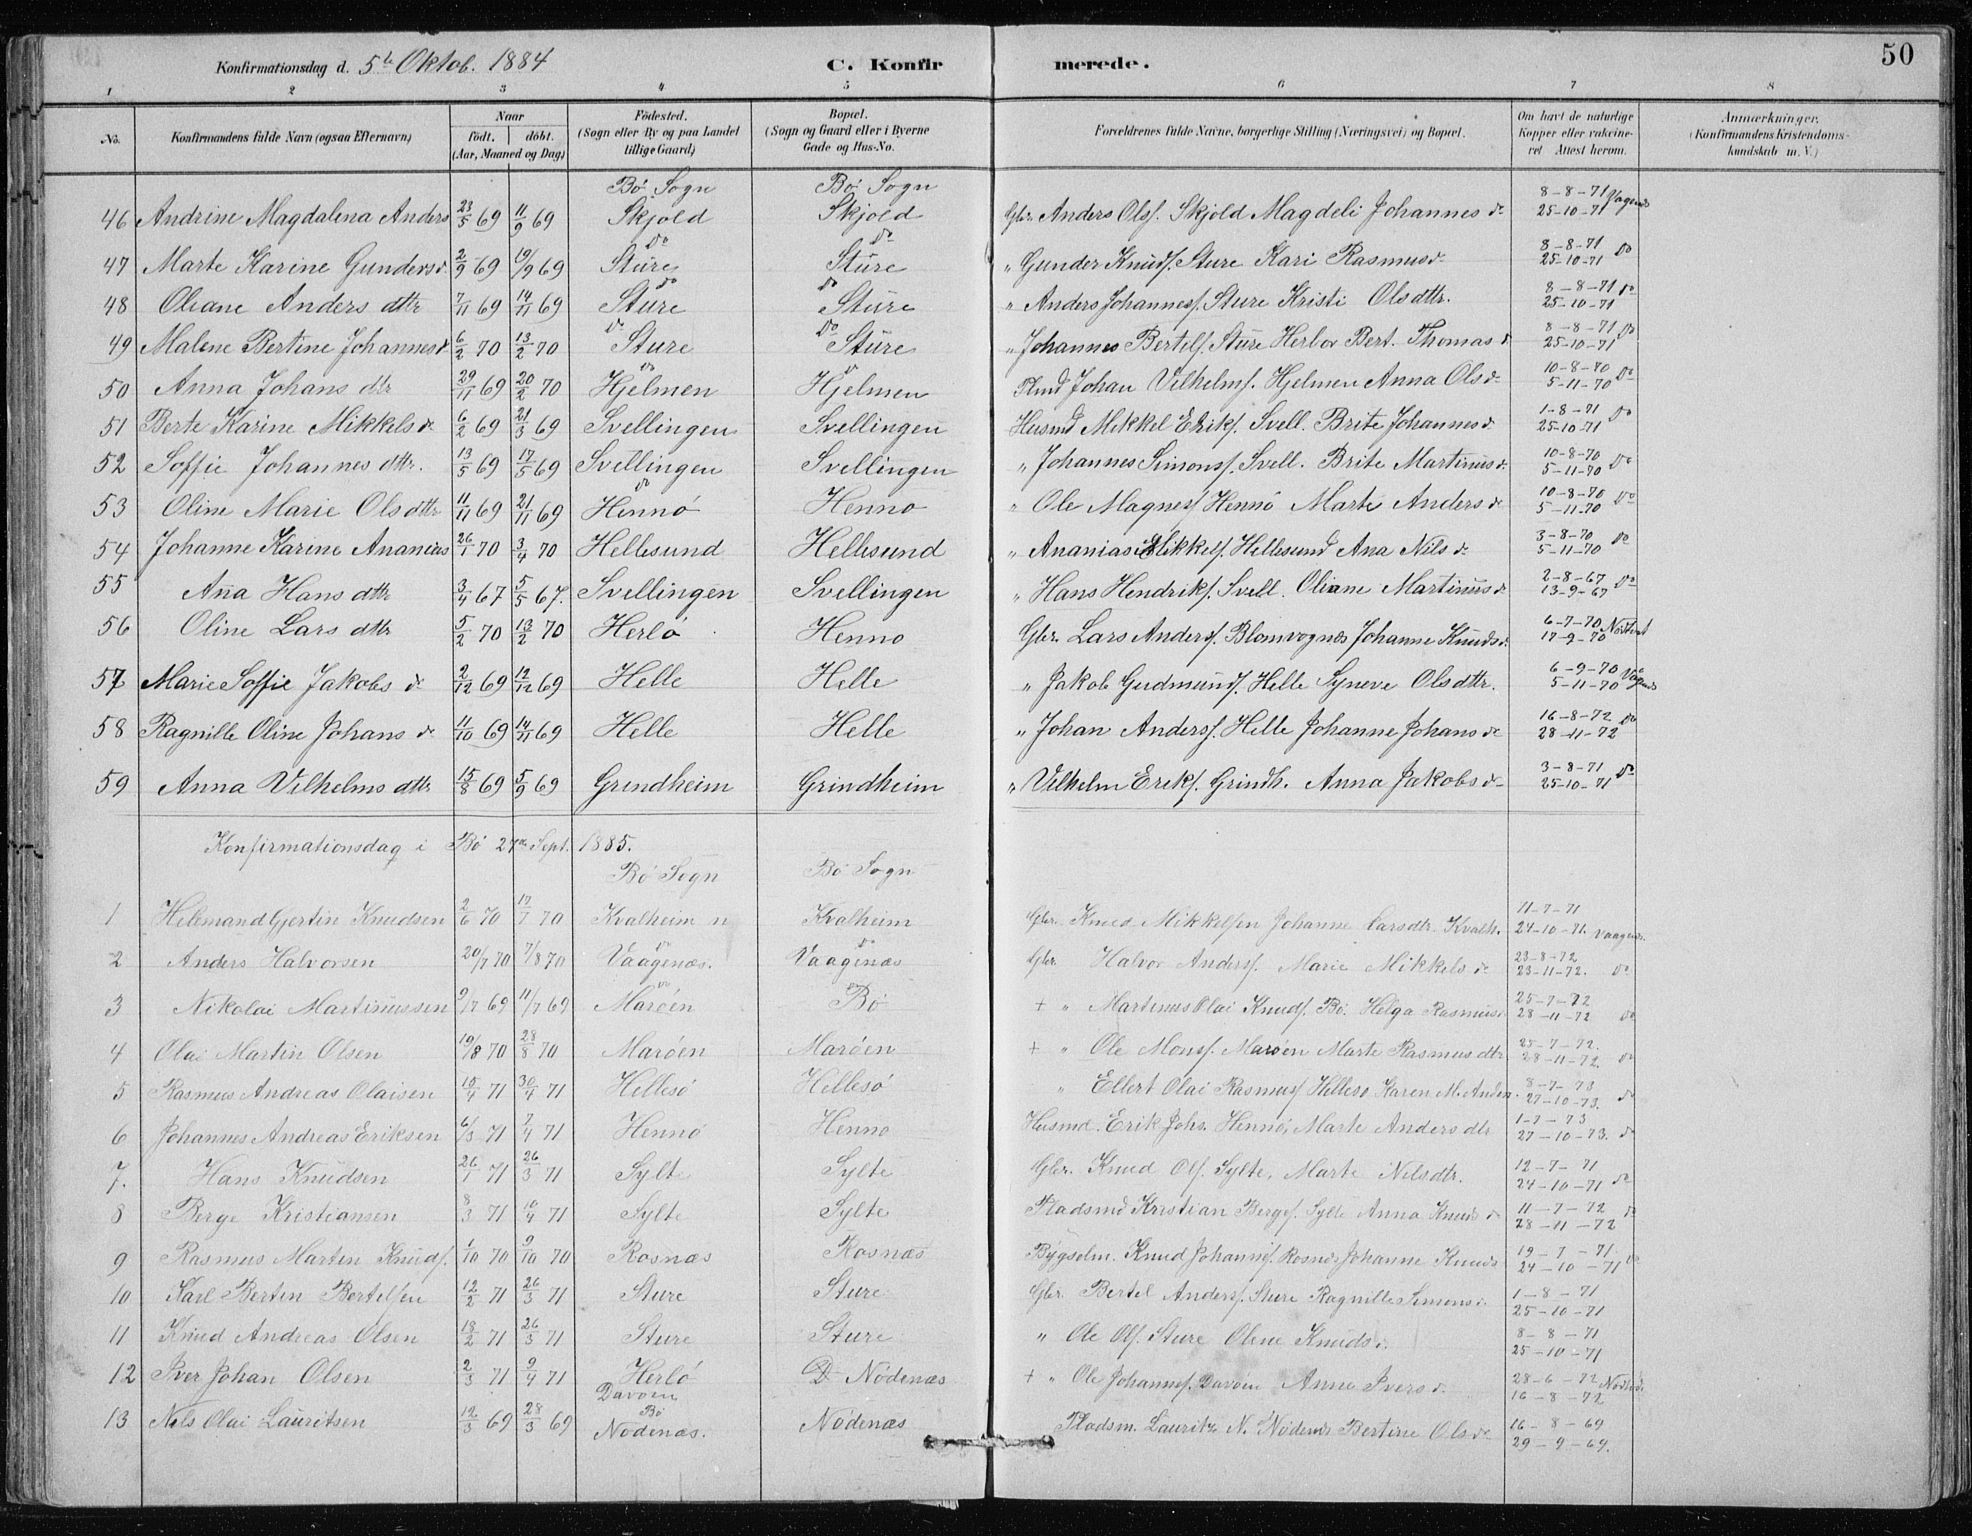 50
Konfirmationsdag d. 5te Oktob. 1884 C. Konfirmerede.
1 2 3 4 5 6 7 8
No. Konfirmandens fulde Navn (ogsaa Efternavn) Naar født. døbt. (Aar, Maaned og Dag) Fødested. (Sogn eller By og paa Landet tillige Gaard) Bopæl. (Sogn og Gaard eller i Byerne Gade og Hus-No. Forældrenes fulde Navne, borgerlige Stilling (Næringsvei) og Bopæl. Om havt de naturlige Kopper eller vakcineret Attest herom. Anmærkninger. (Konfirmandens Kristendomskundskab m. V.)
Bø Sogn Bø Sogn
46 Andrine Magdalena Anders 23/5 69 11/9 69 Skjold Skjold Gbr. Anders Ols. Skjold Magdeli Johannes dr 8-8-71 25-10-71 Vagenes
47 Marte Karine Gundersd. 2/9 69 19/9 69 do Sture do Sture " Gunder Knuds. Sture Kari Rasmusdr 8-8-71 25-10-71 do
48 Oliane Anders dttr 7/11 69 14/11 69 do Sture do Sture " Anders Johannes. Sture Kristi Olsdttr. 8-8-71 25-10-71 do
49 Malene Bertine Johannesd 6/2 70 13/2 70 do Sture do Sture " Johannes Bertels. Sture Herbor Bert. Thomas d 8-8-71 25-10-71 do
50 Anna Johans dtr 29/11 69 20/2 70 do Hjelmen do Hjelmen Johan Vilhelms. Hjelmen Anna Olsdr 10-8-70 5-11-70 do
51 Berte Karine Mikkels dr 6/2 69 21/3 69 Svellingen Svellingen Husmd Mikkel Eriks. Svell. Brite Johannesd. 1-8-71 25-10-71 do
52 Soffie Johannes dttr. 13/5 69 17/5 69 Svellingen Svellingen " Johannes Simons. Svell. Brite Martinusd. 10-8-70 5-11-70 do
53 Oline Marie Olsdttr 11/11 69 21/11 69 do Hennø Henno " Ole Magnes. Hennø Marte Anders dr 10-8-70 5-11-70 do
54 Johanne Karine Ananias 26/1 70 3/4 70 Hellesund Hellesund " Ananias Mikkels. Hellesund Ana Nils dr 3-8-70 5-11-70 do
55 Aña Hans dttr 3/4 67 5/5 67. Svellingen Svellingen " Hans Hendriks. Svell. Oliane Martinusdr 2-8-67 13-9-67 do
56 Oline Lars dttr 5/2 70 13/2 70 Herlø Henno Gbr. Lars Anders. Blomvognes Johanne Knudsd. 6-7-70 17-9-70
57 Marie Soffie Jakobs dr 2/12 69 12/12 69 Helle Helle " Jakob Gudmunds. Helle Syneve Olsdttr. 6-9-70 5-11-70
58 Ragnille Oline Johans dr 11/10 69 14/11 69 Helle Helle " Johan Anders. Helle Johanne Johans dr 16-8-72 28-11-72 do
59 Anna Vilhelms dttr 15/8 69 5/9 69 Grindheim Grindheim " Vilhelm Eriks. Grindh. Anna Jakobsdr 3-8-71 25-10-71 do
Konfirmationsdag i Bø 27de Sept. 1885.
Bø Sogn Bø Sogn
1 Helemand Gjertin Knudsen 2/6 70 17/7 70 Kvalheim n Kvalheim Gbr. Knud Mikkelsen Johanne Larsdtr Kvalh. 11-7-71 24-10-71. Vaagenes.
2 Anders Halvorsen 20/7 70 7/8 70 do Vaagenæs. do Vaagenæs Gbr. Halvor Anders. Marie Mikkels dr 23-8-72 23-11-72. do
3 Nikolai Martinussen 9/7 69 11/7 69 do Marøen Bø + " Martinus Olai Knuds. Bø. Helga Rasmusd. 25-7-72 28-11-72 do
4 Olai Martin Olsen 19/8 70 28/8 70 Marøen Marøen + " Ole Mons. Marøen Marte Rasmus dtr 25-7-72. 28-11-72. do
5 Rasmus Andreas Olaisen 15/4 71 30/4 71 Hellesø Hellesø " Ellert Olai Rasmus. Hellesø Karen M. Anders. 8-7-73 27-10-73. do
6 Johannes Andreas Eriksen 6/3 71 7/4 71 Hennø Henno Husmd. Erik Johs. Hennø, Marte Anders dtr 1-7-73 27-10-73. do
7. Hans Knudsen 26/1 71 26/3 71 Sylte Sylte Gbr. Knud Ols. Sylte, Marte Nilsdtr. 12-7-71 24-10-71 do
8 Berge Kristiansen 8/3 71 10/4 71 Sylte Sylte Pladsmd Kristian Berges. Sylte Anna Knuds d 11-7-72 28-11-72 do
9 Rasmus Martin Knuds. 1/10 70 9/10 70 Rosnæs Rosnæs Bygselm. Knud Johannes. Rosnæs Johanne Knuds 19-7-71. 24-10-71 do
10 Karl Bertin Bertelsen 12/2 71 26/3 71 Sture Sture Gbr. Bertel Anders. Sture Ragnille Simonsd. 1-8-71 25-10-71
11 Knud Andreas Olsen 18/2 71 26/3 71 Sture Sture " Ole Ols. Sture Oline Knudsd. 8-8-71 25-10-71
12 Iver Johan Olsen 2/3 71 9/4 71 Herlø Davøen D Nödenæs + " Ole Johannes. Davøen Anne Ivers d. 28-6-72 16-8-72
13 Nils Olai Lauritsen 12/3 69 28/3 69 Bø Nodenæs. Nödenæs Pladsm. Lauritz N. Nödenæs Bertine Olsdr 16-8-69 29-9-69.